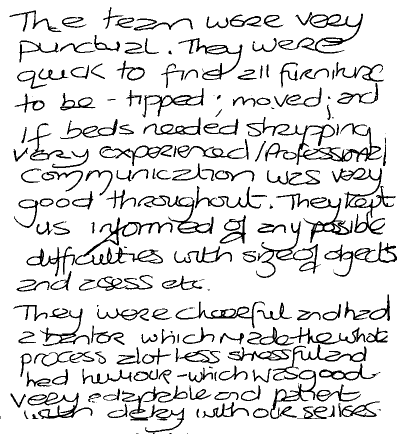 The team were very
punctual. They were
quick to find all furniture
to be - tipped; moved; and
if beds needed strapping
very experienced/Professional
Communication was very
good throughout. They kept
us informed of any possible
difficulties with size of objects
and access etc.
They were cheerful and had
a banter which made the whole
process a lot less stressful and
had humour - which was good
very adaptable and patient
with delay with our